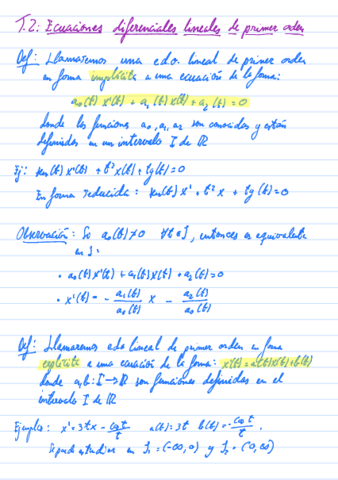 T.2: Ecuaciones diferenciales lineales de primer orden
Def: Llamaremos una edo. lineal de primer orden
en forma implícita a una ecuación de la forma:
a₀(t) x'(t) + a₁(t) x(t) + a₂(t) = 0
donde las funciones a₀, a₁, a₂ son conocidas y están
definidas en un intervalo I de ℝ
Ej: sen(t) x'(t) + t² x(t) + tg(t) = 0
En forma reducida: sen(t) x' + t² x + tg(t) = 0
Observación: Si a₀(t) ≠ 0 ∀t ∈ J, entonces es equivalente
en J:
• a₀(t) x'(t) + a₁(t) x(t) + a₂(t) = 0
• x'(t) = - a₁(t)/a₀(t) x - a₂(t)/a₀(t)
Def: Llamaremos edo lineal de primer orden en forma
explícita a una ecuación de la forma: x'(t) = a(t) x(t) + b(t)
donde a, b: I → ℝ son funciones definidas en el
intervalo I de ℝ
Ejemplo: x' = 3tx - cos t/t a(t) = 3t b(t) = - cos t/t.
estudiar en J₁ = (-∞, 0) y J₂ = (0, ∞)